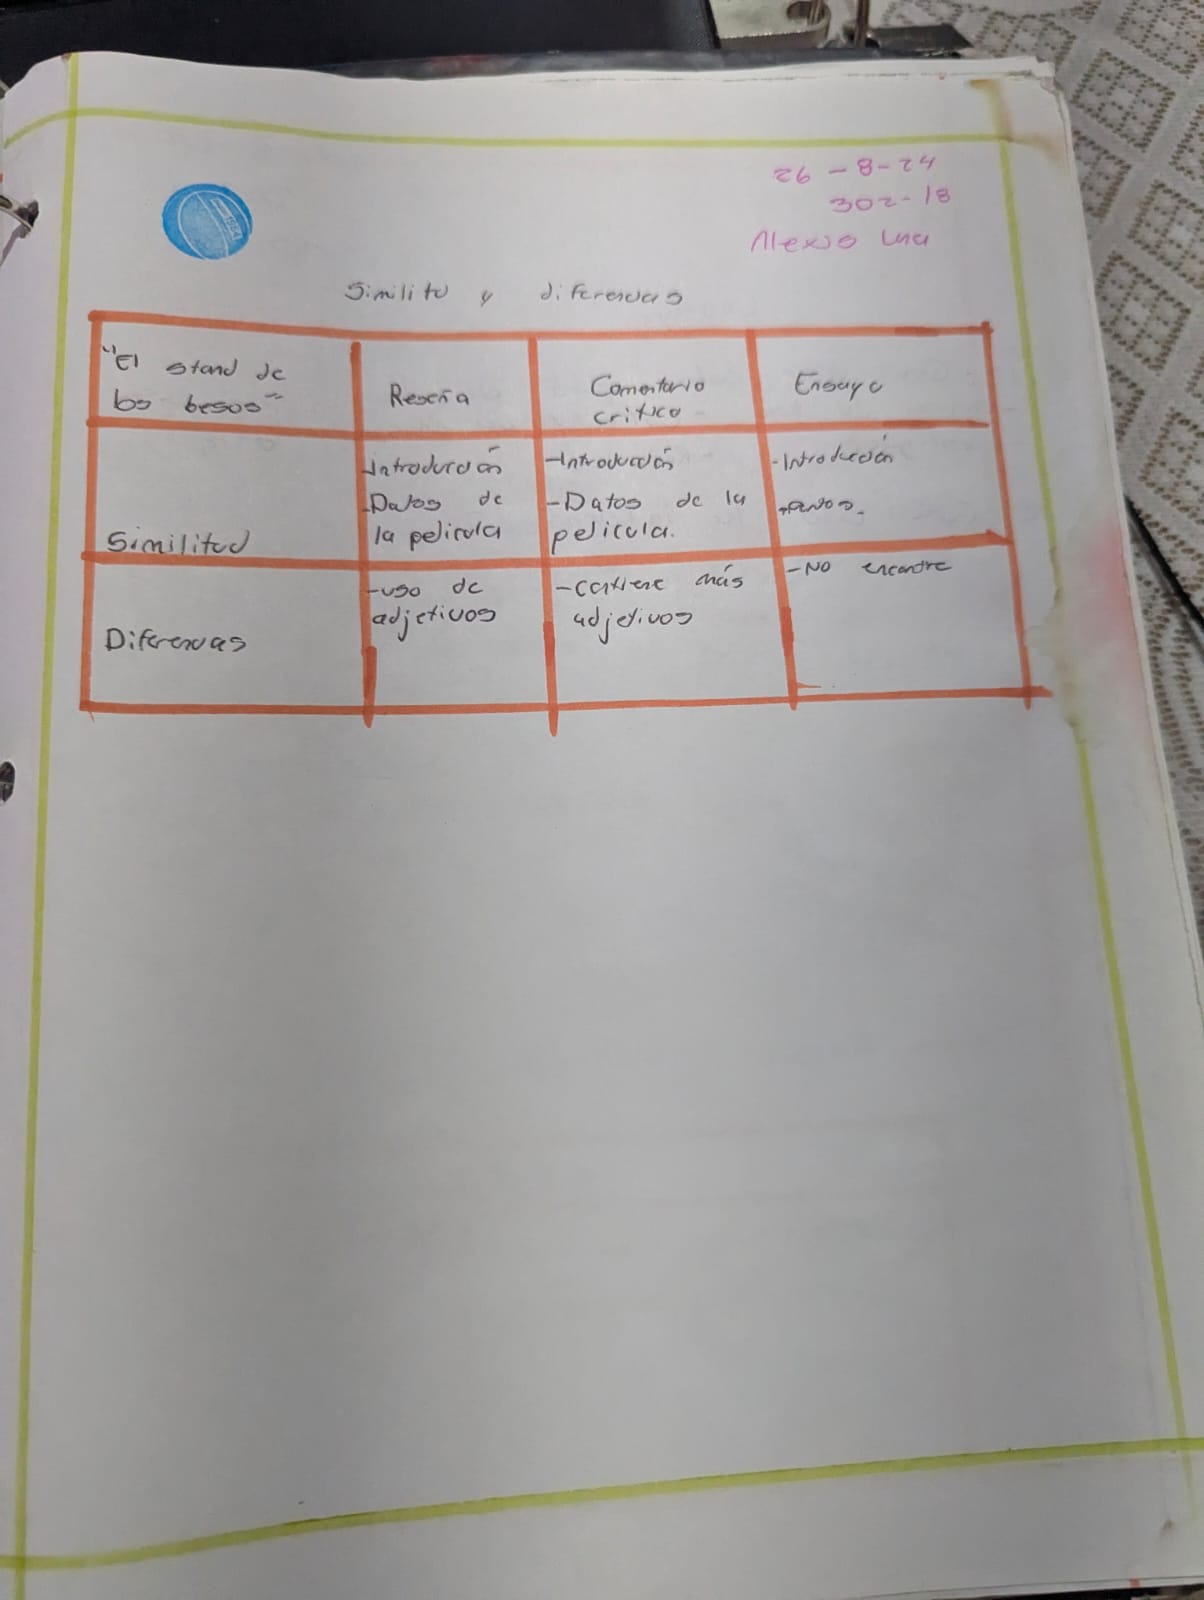 26-8-24
302-18
Similitu y diferencias
"El stand de
los besos"
Reseña
Comentario
critico
Ensayo
Similitud
-Introducción
-Datos de
la pelicula
-Introducción
-Datos de la
pelicula.
-Introducción
Diferencias
-uso de
adjetivos
-contiene más
adjetivos
-No encontre